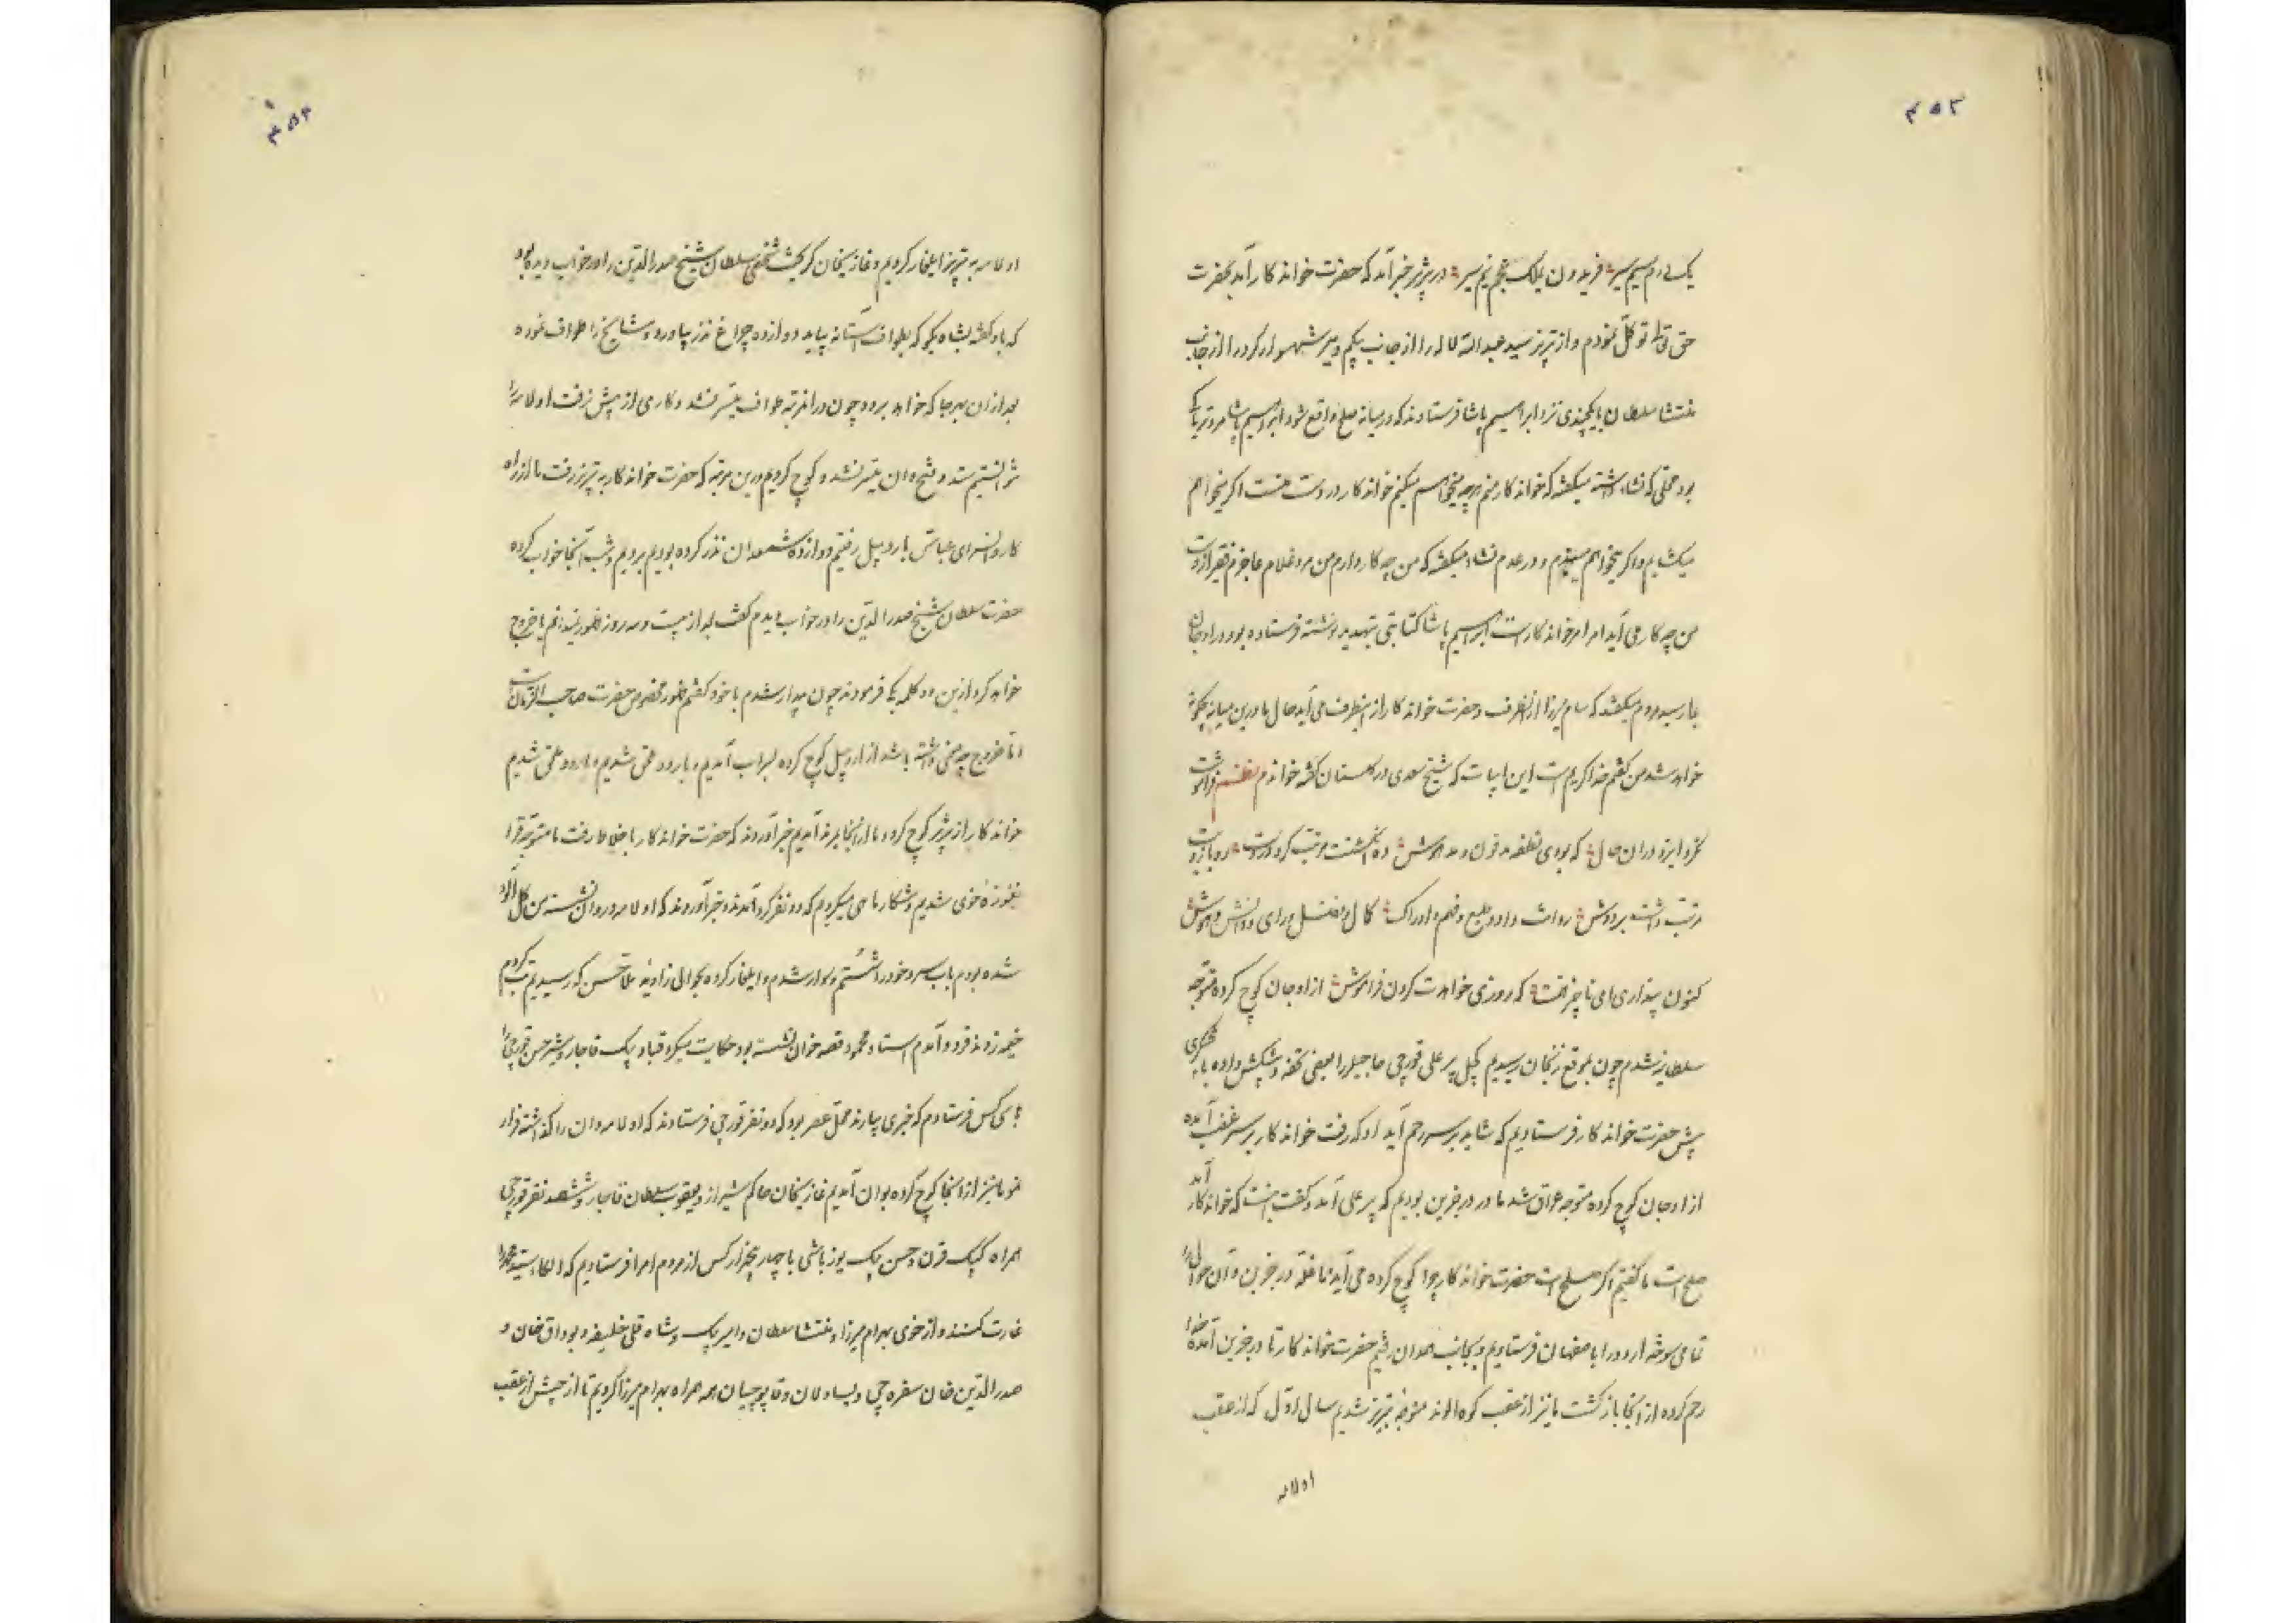 ۴۵۲
یک نیم سیر فریدون بملک عجم نیم سیر در پژیر خبر آمد که حضرت خواندکار آمد بحضرت
حق تعالی توکل نمودم و از تبریز سید عبدالله لاله را از جانب بیکم و میر شهسوار کرد را از جانب
منتشا سلطان بایکچندی نزد ابراهیم پاشا فرستادند که در میانه صلح واقع شود ابراهیم پاشا مرد تریاکی
بود محلی که نشاء داشته میگفته که خواندکار منم هرچه میخواهم میکنم خواندکار در دست منست اگر میخواهم
میکشایم و اگر میخواهم میبندم و در عدم نشاء میگفته که من چه کار دارم من مرد غلام عاجزم فقیر از دست
من چه کار می‌آید امر امر خواندکار است ابراهیم پاشا کتابتی تهدید نوشته فرستاده بود در اوجان
بما رسید مردم میگفتند که سام میرزا از آنطرف و حضرت خواندکار از اینطرف می‌آید حال ما درین میانه چگونه
خواهد شد من گفتم خدا کریم است این ابیات که شیخ سعدی در گلستان گفته خواندم نظم فراموشت
نکرد ایزد در آن حال که بودی نطفه مدفون و مدهوش ده انگشتت مرتب کرد بر دست دو بازویت
مرتب داشت بر دوش روانت داد و طبع و فهم و ادراک کمال و فضل و رای و دانش و هوش
کنون پنداری ای ناچیز همت که روزی خواهدت کردن فراموش از اوجان کوچ کرده متوجه
سلطانیه شدم چون بموقع زنجان رسیدیم کچل پیر علی قورچی حاجیلر را بعضی تحفه و پیشکش داده بایلچیگری
پیش حضرت خواندکار فرستادیم که شاید بر سر رحم آید او که رفت خواندکار بر سر غضب آمده
از اوجان کوچ کرده متوجه عراق شد ما در درجزین بودیم که پیر علی آمد و گفت اینست که خواندکار آمد
صلح است ما گفتیم اگر صلح است حضرت خواندکار چرا کوچ کرده می‌آید ما غله درجزین و آن حوالی را
تمامی سوخته اردو را باصفهان فرستادیم و بجانب همدان رفتیم حضرت خواندکار تا درجزین آمده خدا
رحم کرده از آنجا بازگشت ما نیز از عقب کوه الوند متوجه تبریز شدیم سال اول که از عقب
اولامه
۴۵۳
اولامه به تبریز ایلغار کردیم و غازیخان گریخت شخصی سلطان شیخ صدرالدین را در خواب دیده بود
که باو گفته بشاه بگو که بطواف آستانه بیاید و دوازده چراغ نذر بیاورد و مشایخ را طواف نموده
بعد از آن بهر جا که خواهد برود چون در آنمرتبه طواف میسر نشد و کاری از پیش نرفت اولامه را
نتوانستیم ستد و فتح وان میسر نشد و کوچ کردیم درین مرتبه که حضرت خواندکار به تبریز رفت ما از راه
کاروانسرای عباس باردبیل رفتیم و دوازده شمعدان نذر کرده بودیم بردیم و شب آنجا خواب کرده
حضرت سلطان شیخ صدرالدین را در خواب دیدم گفت بعد از بیست و سه روز ظهور نمیدانم یا خروج
خواهد کرد ازین دو کلمه یکی فرمودند چون بیدار شدم با خود گفتم ظهور مخصوص حضرت صاحب الزمان است
اما خروج چه معنی داشته باشد از اردبیل کوچ کرده بسراب آمدیم و باردو ملحق شدیم و باردو ملحق شدیم
خواندکار از پژیر کوچ کرده ما از آنجا بمرند آمدیم خبر آوردند که حضرت خواندکار باخلاط رفت ما متوجه قرا
نغوزه خوی شدیم و شکار ماهی میکردم که دو نفر کرد آمدند و خبر آوردند که اولامه در وان نشسته من گل آلود
شده بودم بآب سر خود را شستم و سوار شدم و ایلغار کرده بحوالی زاویه ملا حسن که رسیدیم تب کردم
خیمه زدند فرود آمدم استاد محمود قصه خوان نشسته بود حکایت میکرد قباد بیک قاجار و شیر حسن قورچی را
با سی کس فرستادم که خبری بیارند محل عصر بود که دو نفر قورچی فرستادند که اولامه وان را گذاشته فرار
نمود ما نیز از آنجا کوچ کرده بوان آمدیم غازیخان حاکم شیراز و یعقوب سلطان قاجار و ششصد نفر قورچی
همراه کپک قرن و حسن بیک یوزباشی با چهار پنجهزار کس از مردم امرا فرستادیم که الکاء سید محمد را
غارت کنند و از خوی بهرام میرزا و منتشا سلطان و امیر بیک و شاه قلی خلیفه و بوداق خان و
صدرالدین خان سفره چی و یساولان و قاپوچیان همه همراه بهرام میرزا کردیم تا ارجیش از عقب